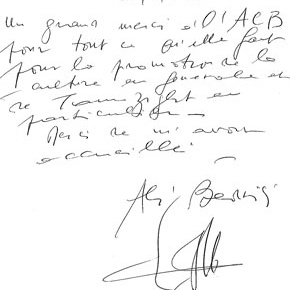 Un grand merci à l'ACB
pour tout ce qu'elle fait
pour la promotion de la
culture en générale et
de Tamazight en
particulier
Merci de m'avoir
accueilli
Ali